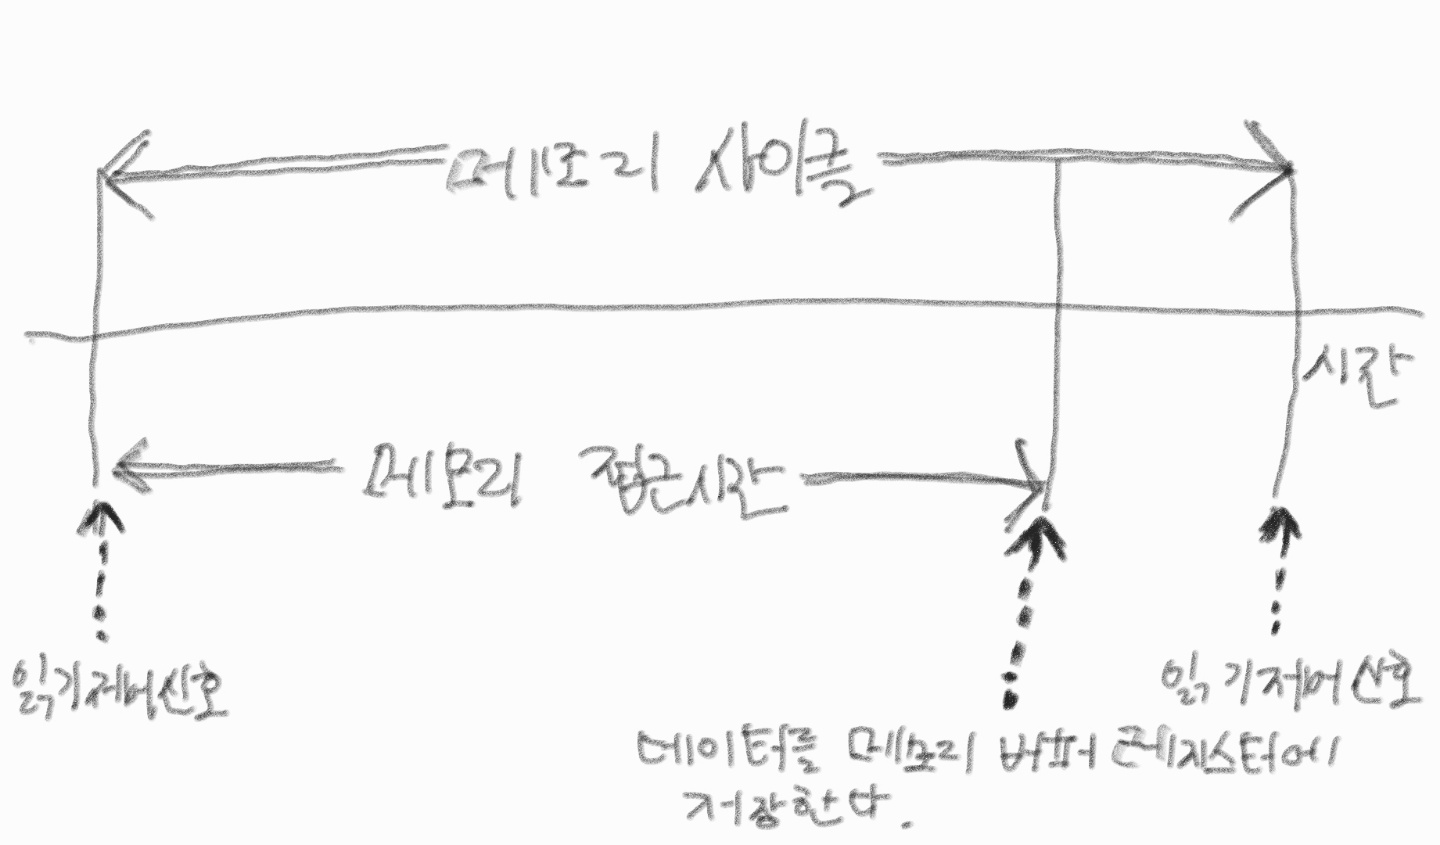 메모리 사이클
시간
메모리 접근시간
읽기제어신호
읽기제어신호
데이터를 메모리 버퍼 레지스터에
저장한다.